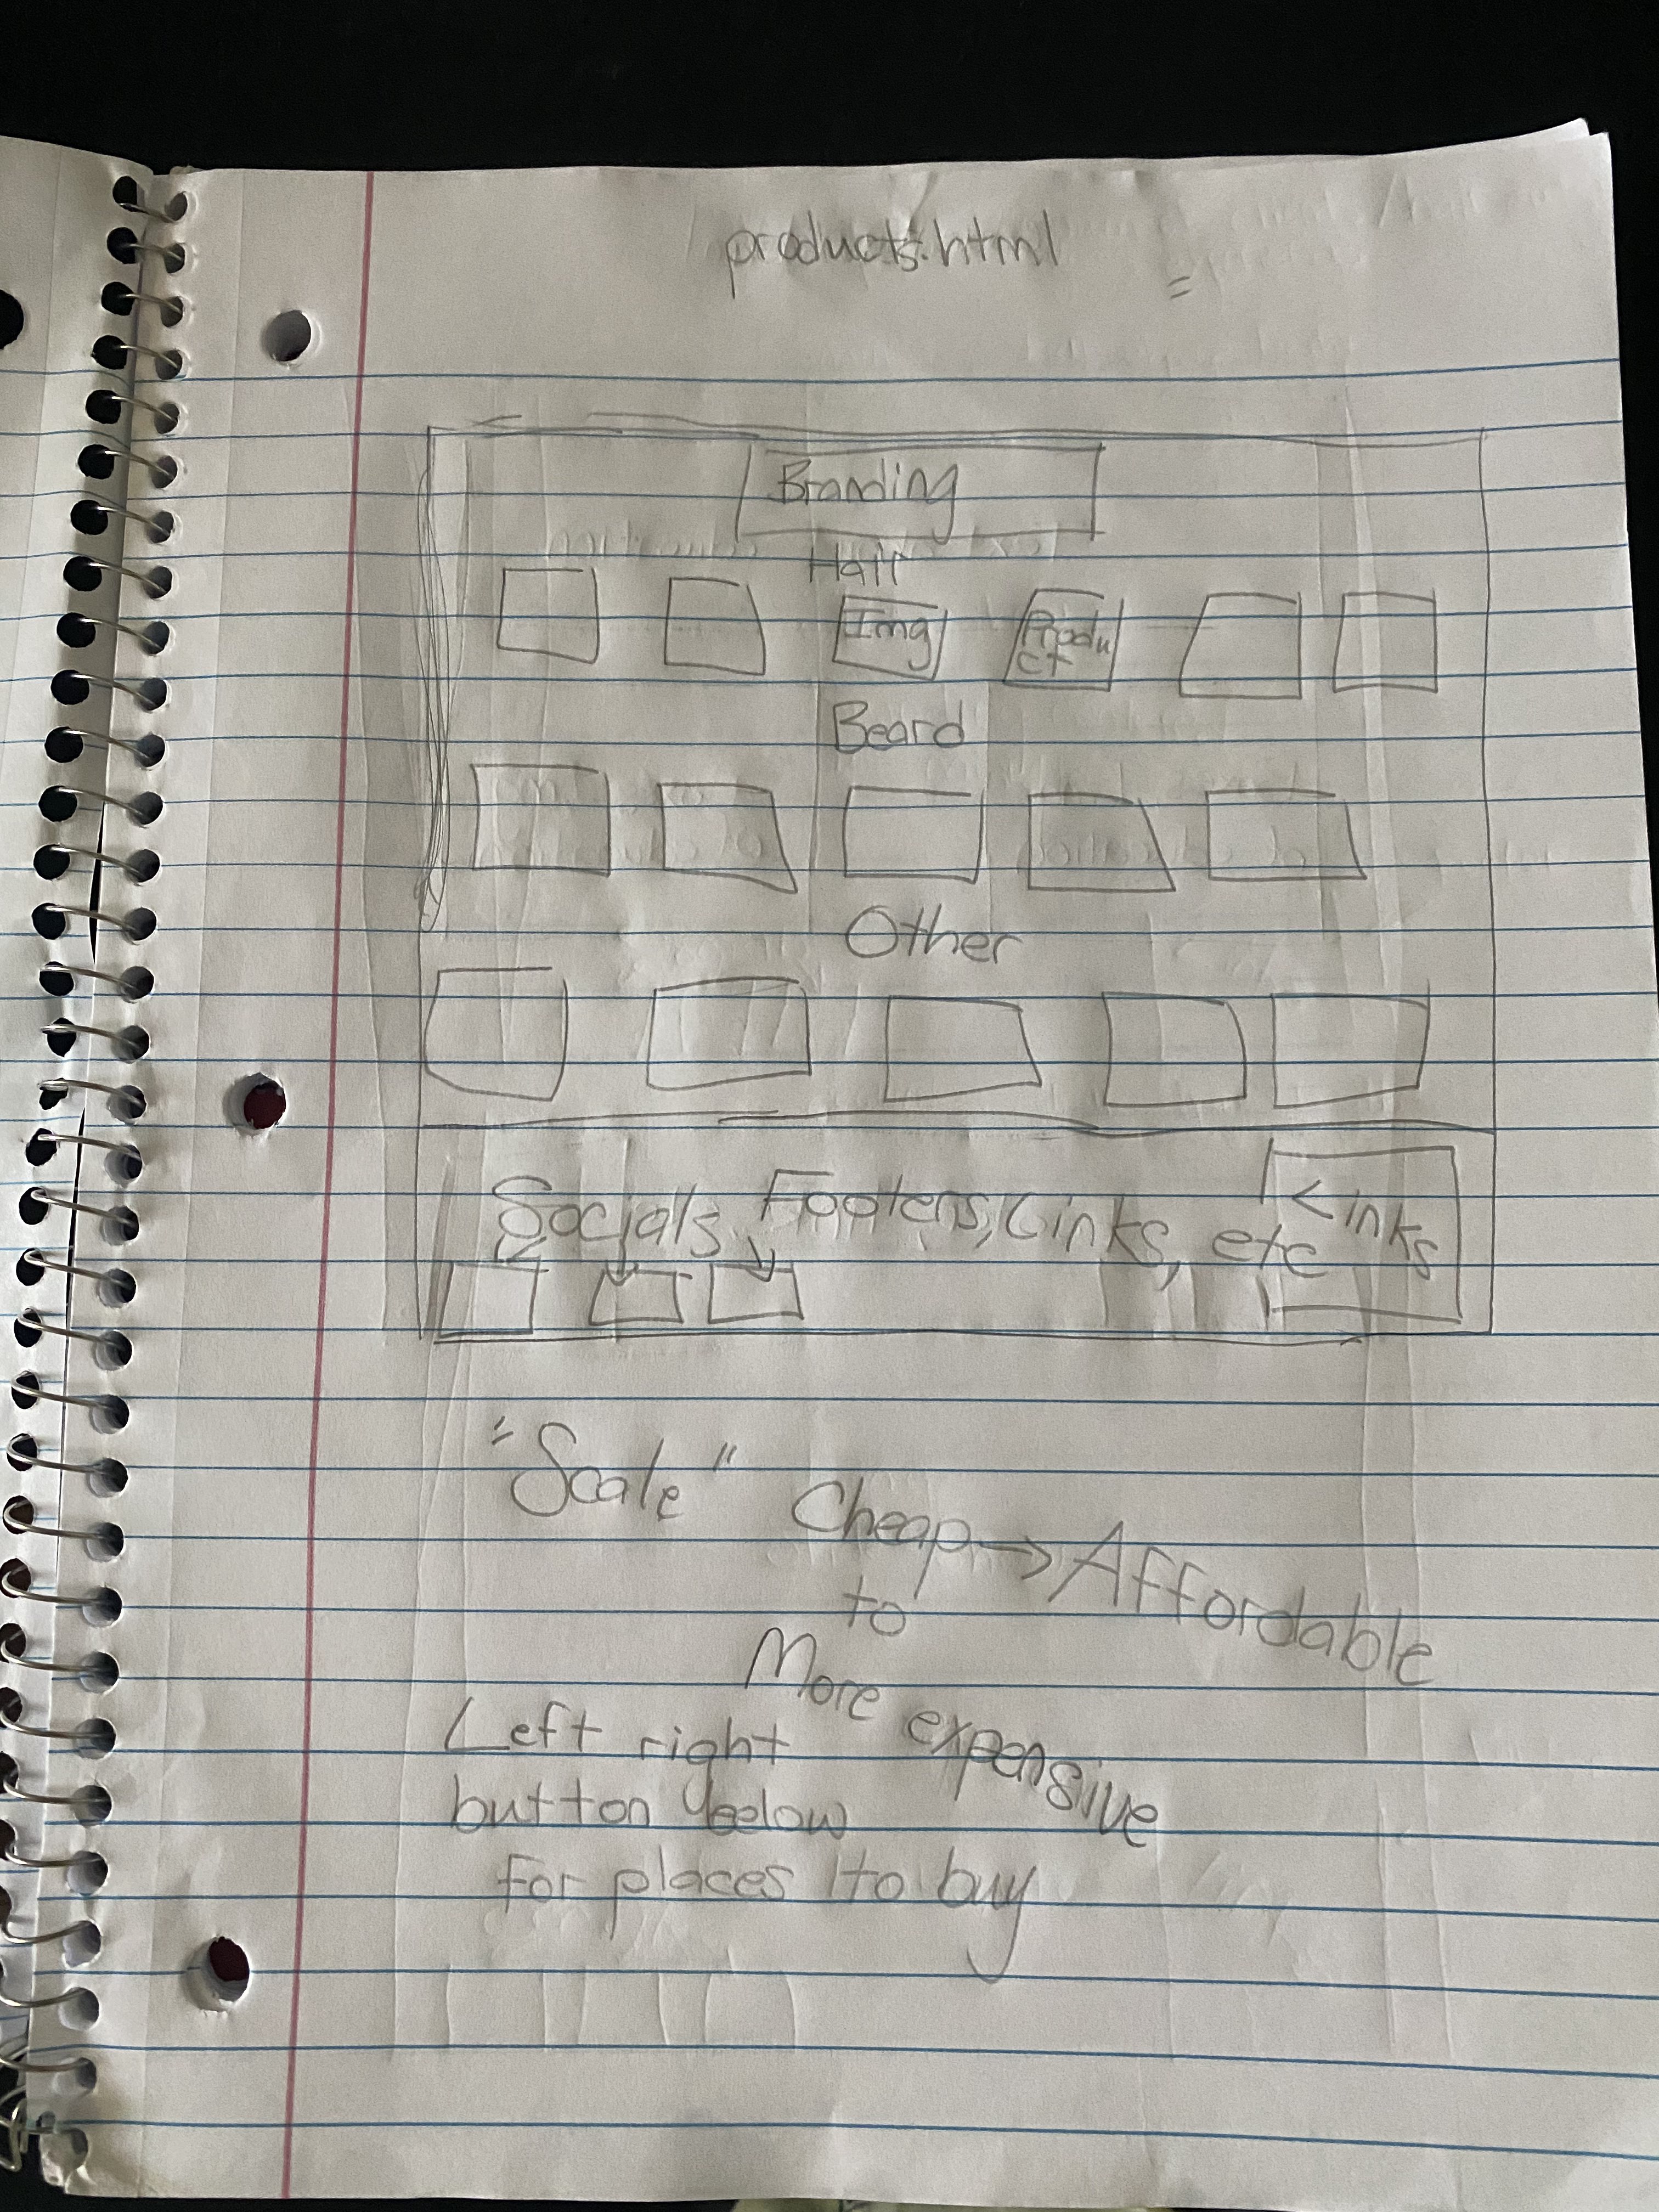 products.html
=
Branding
Hair
Img
Produ
ct
Beard
Other
Socials, Footers, Links, etc
Links
"Scale" Cheap → Affordable
to
More expensive
Left right
button below
for places to buy